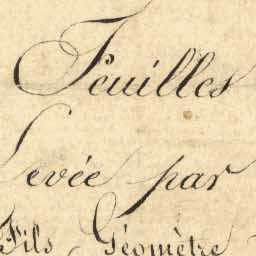 Feuilles
Levée par
Fils, Géomètre